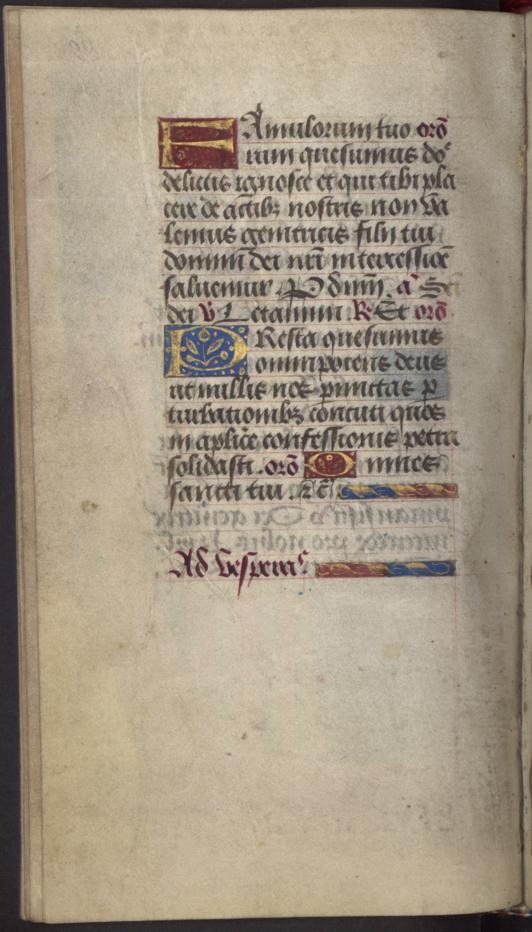 Famulorum tuo orõ
rum quesumus dñe
delictis ignosce et qui tibi pla
cere de actibꝫ nostris non va
lemus genitricis filii tui
domini dei nr̃i intercessiõe
saluemur P dñm̃. añ
dei ℣ Letamini. ℟ Et orõ
Presta quesumus
omnipotens deus
ut nullis nos permittas ꝑ
turbationibꝫ concuti quos
in aplic̃e confessionis petra
solidasti. orõ Omnes
sancti tui. &c̃
Ad vesperas.